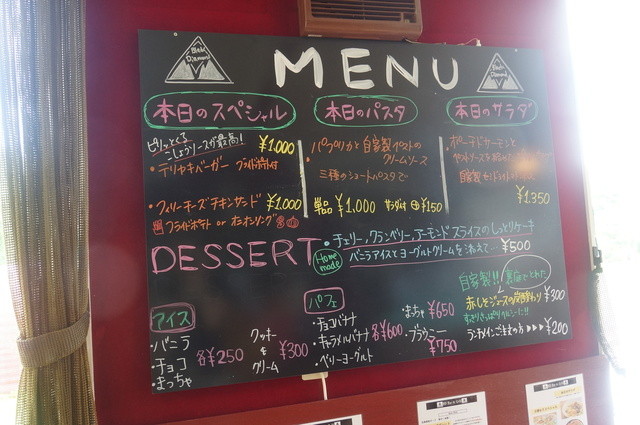 Black Diamond
MENU
Black Diamond
本日のスペシャル
ピリッとくる
こしょうソースが最高!
・テリヤキバーガー フライドポテト付
¥1,000
・フィリーチーズチキンサンド ¥1,000
フライドポテト or オニオンリング
本日のパスタ
・パプリカと自家製ペーストの
クリームソース
三種のショートパスタで
単品 ¥1,000 サラダ付 ⊕¥150
本日のサラダ
・ポーチドサーモンと
自家製
¥1,350
DESSERT
Home made
・チェリー、クランベリー、アーモンドスライスのしっとりケーキ
バニラアイスとヨーグルトクリームを添えて… ¥500
アイス
・バニラ
・チョコ
・まっちゃ
各¥250
クッキー
&
クリーム
¥300
パフェ
・チョコバナナ
・キャラメルバナナ
・ベリーヨーグルト
各¥600
・まちゃ ¥650
・ブラウニー
¥750
自家製!! 裏庭でとれた
赤しそジュースの ¥300
すっきりさっぱり
ランチメインご注文の方 ▶▶▶ ¥200